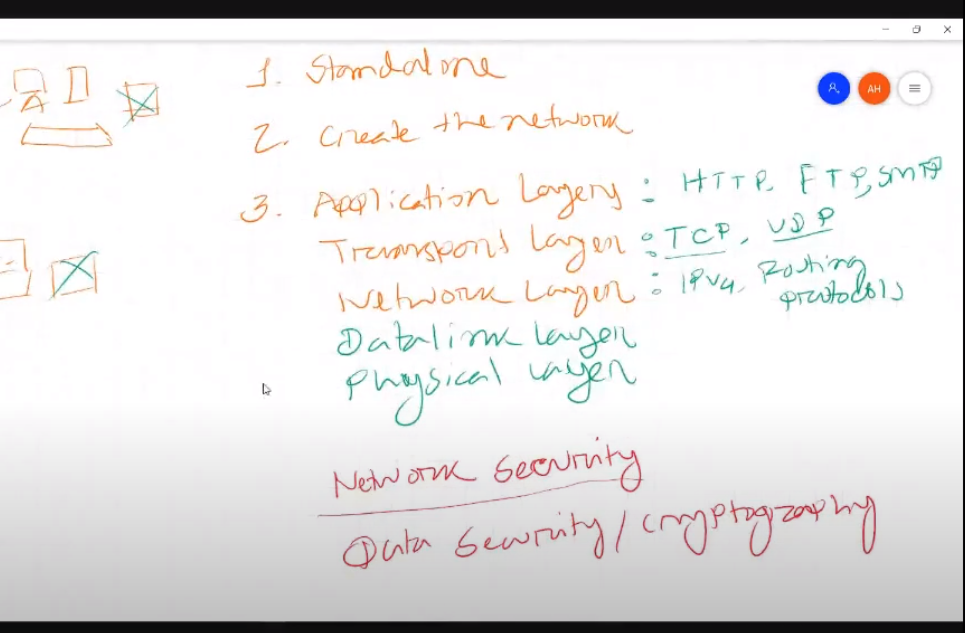 AH
1. Standalone
2. Create the network
3. Application Layers : HTTP, FTP, SMTP
Transport Layer : TCP, UDP
Network Layer : IPv4, Routing protocols
Datalink Layer
Physical Layer
Network Security
Data Security / Cryptography